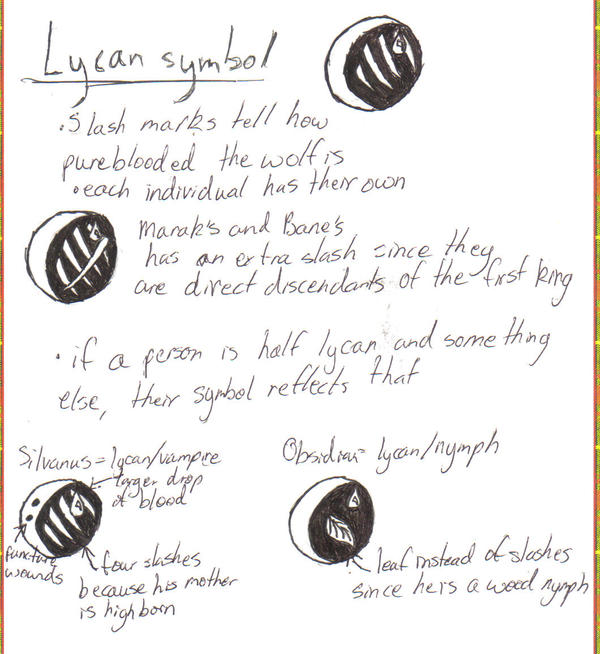 Lycan symbol
• Slash marks tell how
pureblooded the wolf is
• each individual has their own
Marak's and Bane's
has an extra slash since they
are direct discendants of the first king
• if a person is half lycan and something
else, their symbol reflects that
Silvanus = lycan/vampire
larger drop
of blood
puncture
wounds
four slashes
because his mother
is highborn
Obsidian = lycan/nymph
leaf instead of slashes
since he is a wood nymph